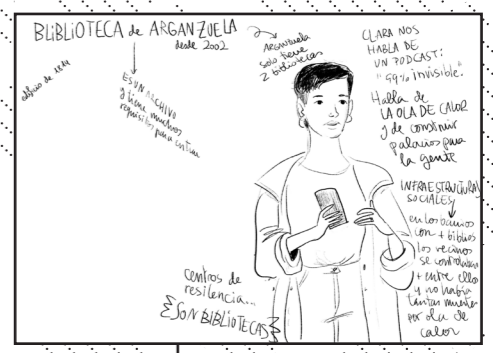 BLIBLIOTECA de ARGANZUELA
desde 2002
edificio de 1924
ES UN ARCHIVO
y tiene muchos
requisitos para entrar
ARGANZuela
solo tiene
2 bibliotecas
CLARA NOS
HABLA DE
UN PODCAST:
"99% invisible."
Habla de
LA OLA DE CALOR
y de construir
palacios para
la gente
INFRAESTRUCTURAS
SOCIALES
en los barrios
con + biblios
los vecinos
se controlaban
+ entre ellos
y no había
tantas muertes
por ola de
calor
centros de
resilencia...
SON BIBLIOTECAS